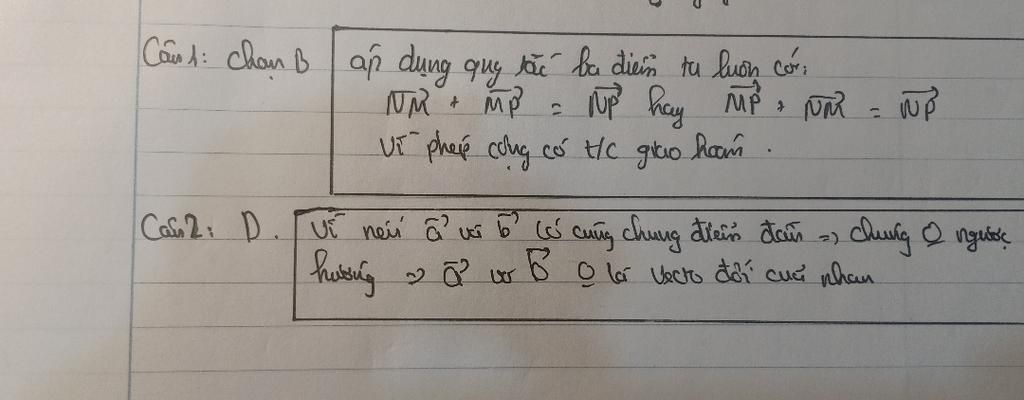 Câu 1: Chọn B
áp dụng quy tắc ba điểm ta luôn có:
NM + MP = NP hay MP + NM = NP
Vì phép cộng có t/c giao hoán.
Câu 2: D.
Vì nếu a và b có cùng chung điểm đầu => chúng O ngược
hướng => a và b O là vectơ đối của nhau